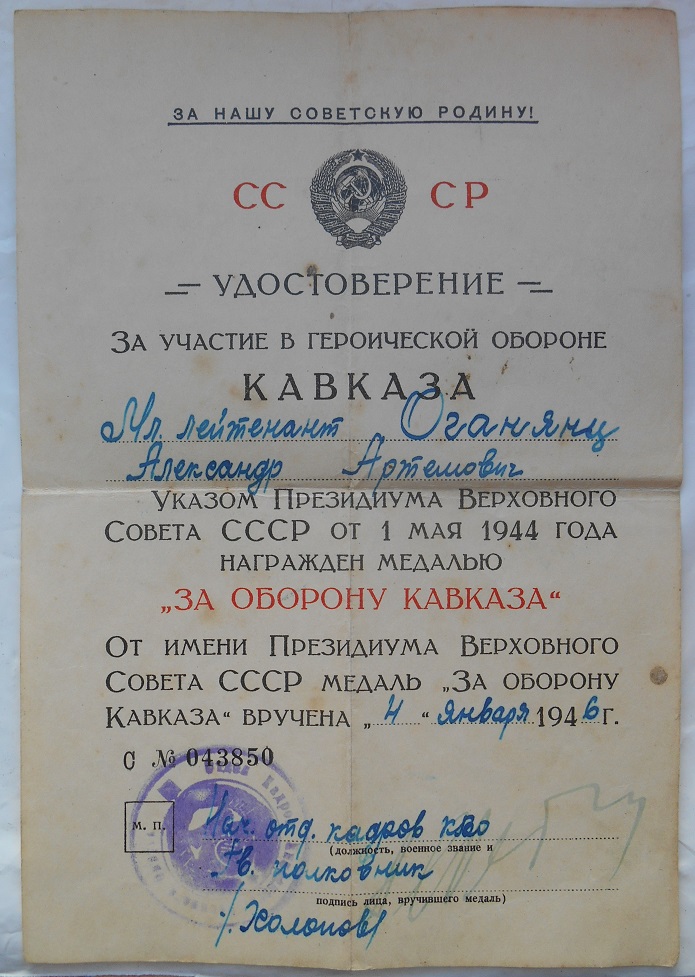 ЗА НАШУ СОВЕТСКУЮ РОДИНУ!
СС СР
УДОСТОВЕРЕНИЕ
ЗА УЧАСТИЕ В ГЕРОИЧЕСКОЙ ОБОРОНЕ
КАВКАЗА
Мл. лейтенант Оганянц
Александр Артемович
УКАЗОМ ПРЕЗИДИУМА ВЕРХОВНОГО
СОВЕТА СССР ОТ 1 МАЯ 1944 ГОДА
НАГРАЖДЕН МЕДАЛЬЮ
„ЗА ОБОРОНУ КАВКАЗА“
ОТ ИМЕНИ ПРЕЗИДИУМА ВЕРХОВНОГО
СОВЕТА СССР МЕДАЛЬ „ЗА ОБОРОНУ
КАВКАЗА“ ВРУЧЕНА „4“ января 1946 г.
С № 043850
М. П.
Нач. отд. кадров КВО
(должность, военное звание и
Гв. полковник
подпись лица, вручившего медаль)
/Холопов/